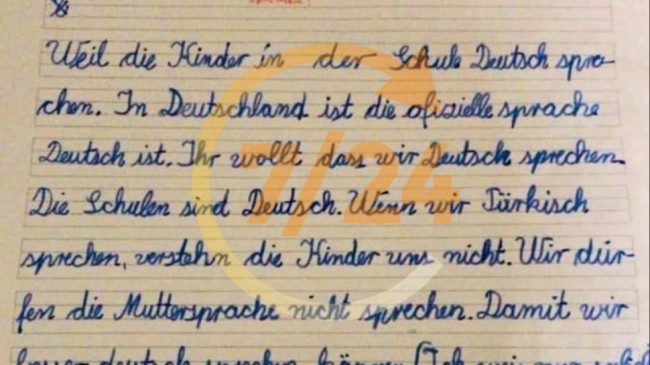 Weil die Kinder in der Schule Deutsch spre-
chen. In Deutschland ist die ofizielle sprache
Deutsch ist. Ihr wollt dass wir Deutsch sprechen.
Die Schulen sind Deutsch. Wenn wir Türkisch
sprechen, verstehn die Kinder uns nicht. Wir dür-
fen die Muttersprache nicht sprechen. Damit wir
besser deutsch sprechen können
7/24